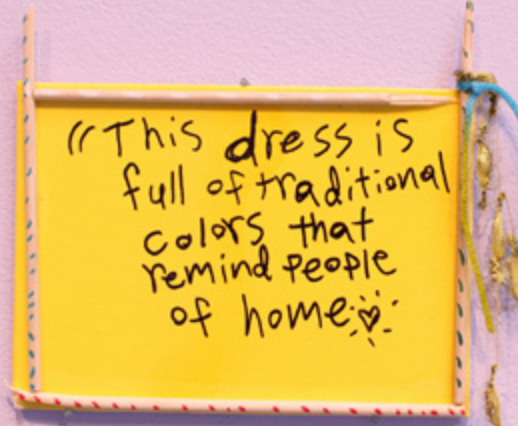 "This dress is
full of traditional
colors that
remind people
of home